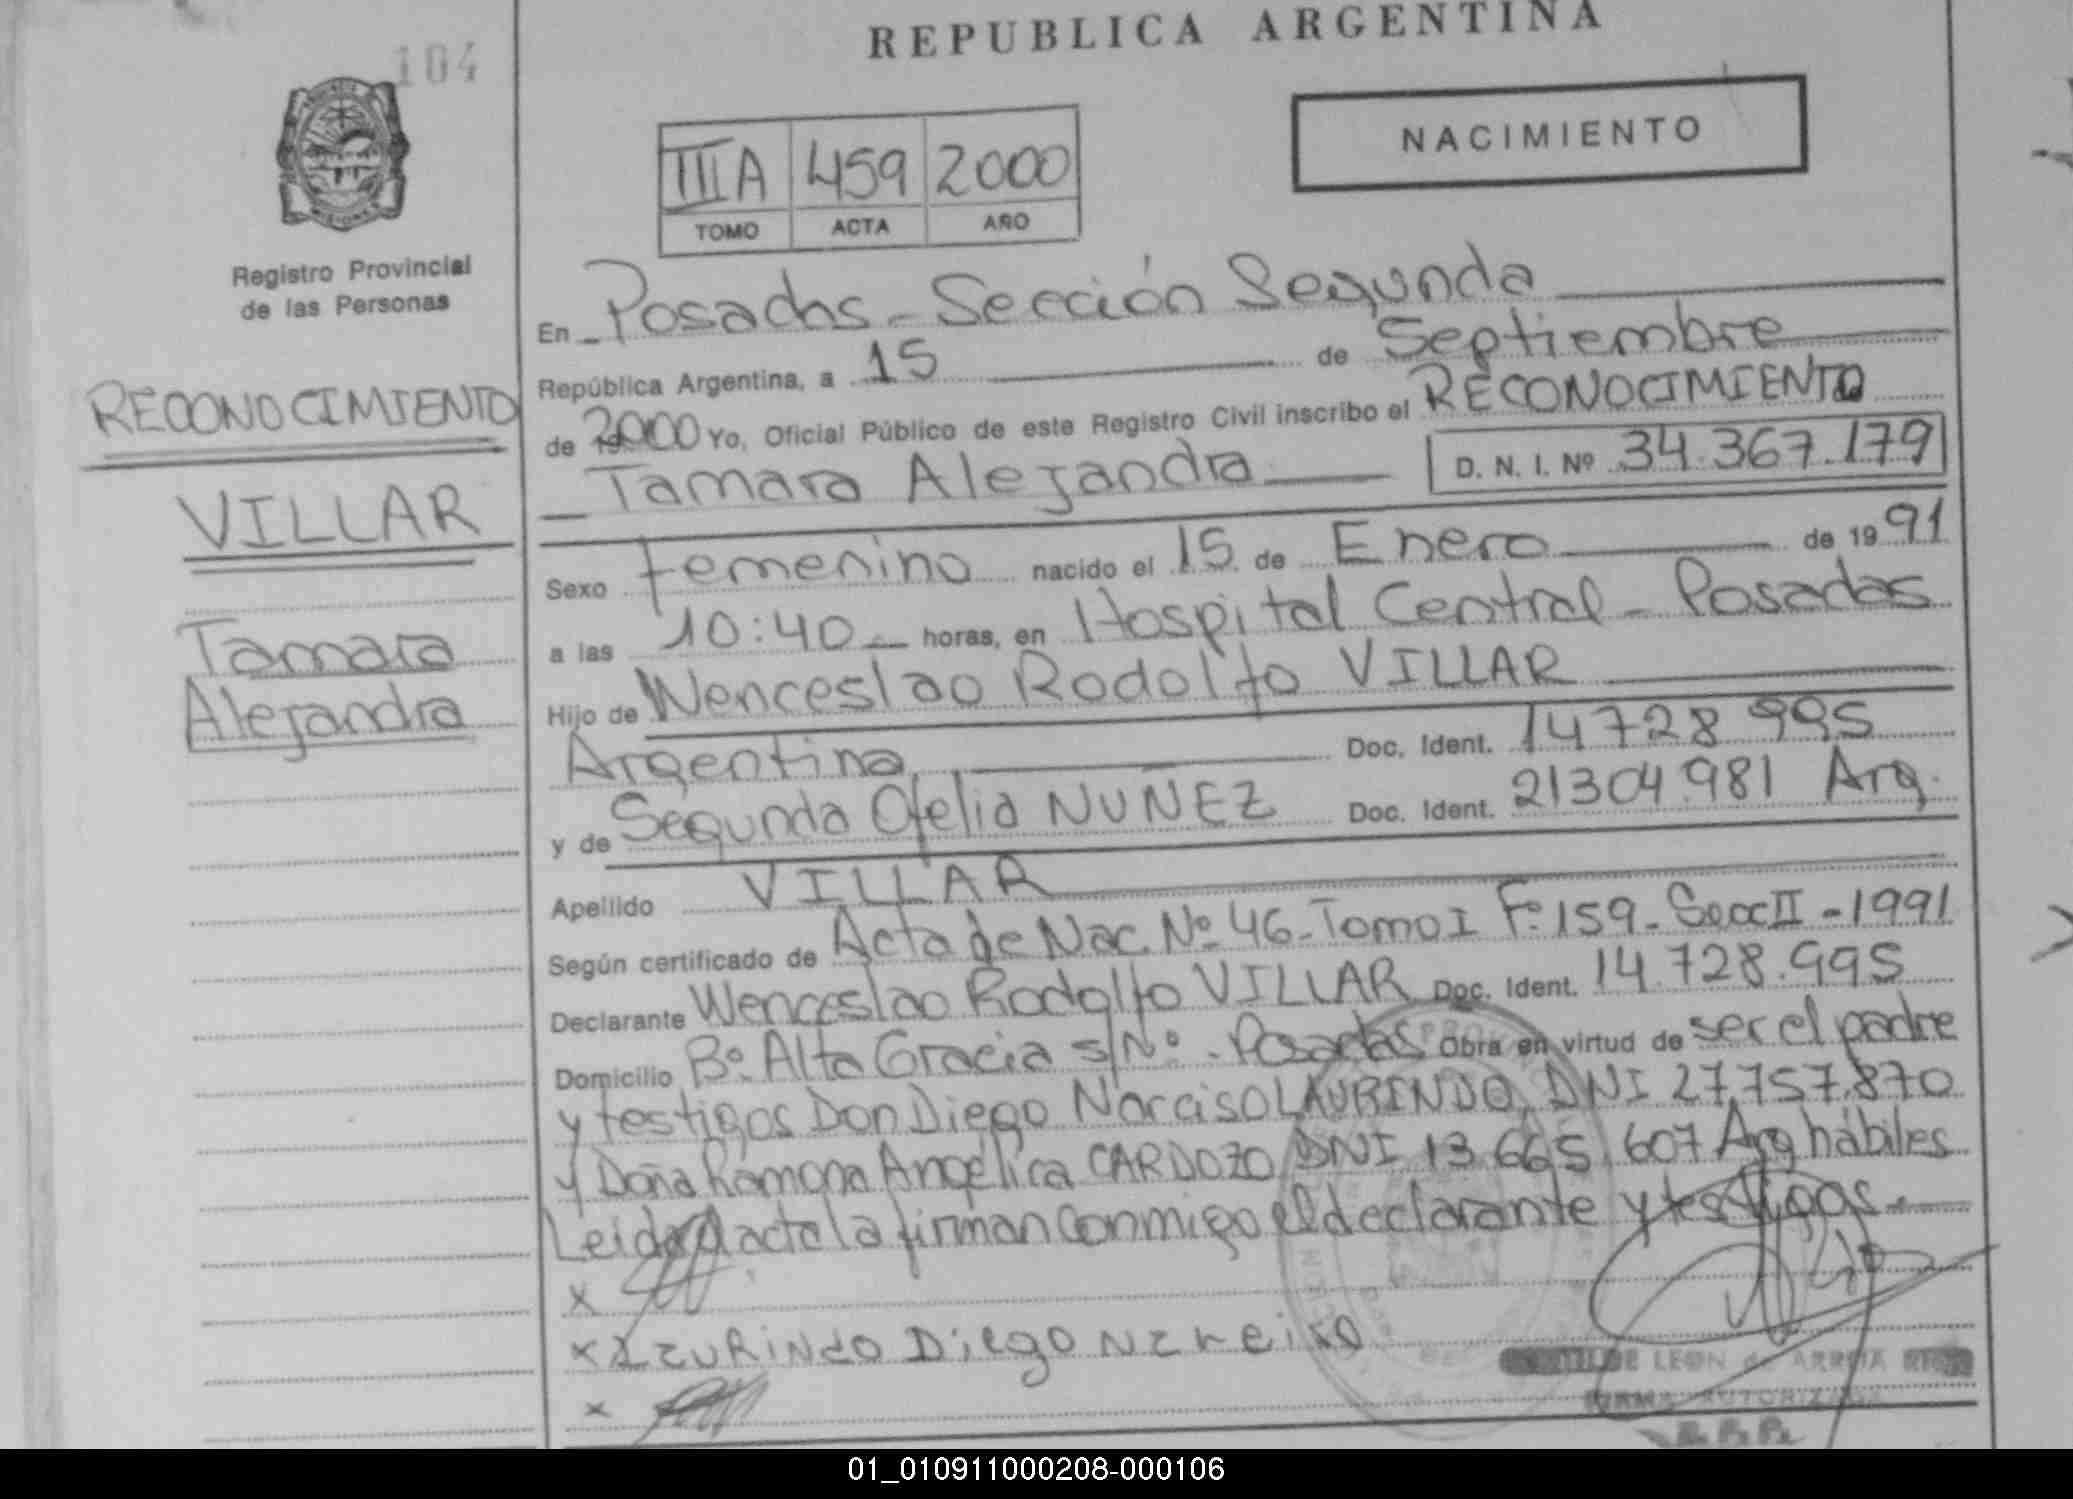 REPUBLICA ARGENTINA
104
NACIMIENTO
III A 459 2000
TOMO ACTA AÑO
Registro Provincial
de las Personas
RECONOCIMIENTO
VILLAR
Tamara
Alejandra
En Posadas - Sección Segunda
República Argentina, a 15 de Septiembre
de 2000 Yo, Oficial Público de este Registro Civil inscribo el RECONOCIMIENTO
Tamara Alejandra D. N. I. Nº 34.367.179
Sexo femenino nacido el 15 de Enero de 19 91
a las 10:40 horas, en Hospital Central - Posadas
Hijo de Wenceslao Rodolfo VILLAR
Argentina Doc. Ident. 14728 995
y de Segunda Ofelia NUÑEZ Doc. Ident. 21304.981 Arg.
Apellido VILLAR
Según certificado de Acta de Nac. Nº 46 - Tomo I Fº 159 - Secc II - 1991
Declarante Wenceslao Rodolfo VILLAR Doc. Ident. 14.728.995
Domicilio Bº Alta Gracia s/Nº - Posadas Obra en virtud de ser el padre
y testigos Don Diego Narciso LAURINDO, DNI 27.757.870
y Doña Ramona Angélica CARDOZO DNI 13.665.607 Arg hábiles
Leida el acta la firman conmigo el declarante y testigos.-
x
x LauRindo Diego Narciso
x
DE LEON de ARRUA
FIRMA AUTORIZADA
R.P.P.
01_010911000208-000106